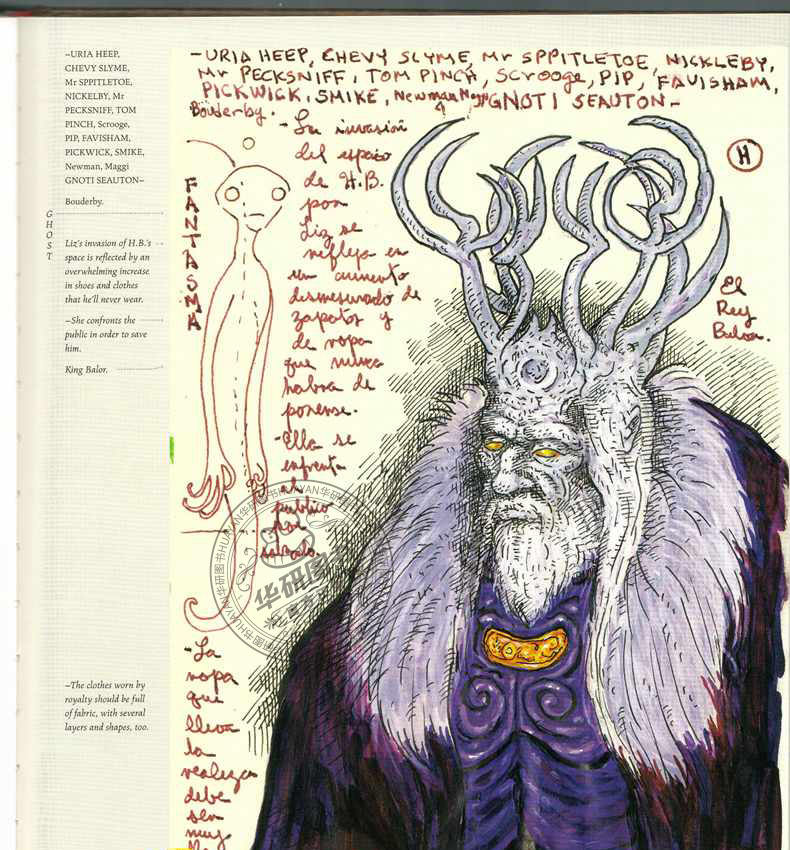 –URIA HEEP,
CHEVY SLYME,
Mr SPPITLETOE,
NICKELBY, Mr
PECKSNIFF, TOM
PINCH, Scrooge,
PIP, FAVISHAM,
PICKWICK, SMIKE,
Newman, Maggi
GNOTI SEAUTON–
Bouderby.
GHOST
Liz's invasion of H.B.'s
space is reflected by an
overwhelming increase
in shoes and clothes
that he'll never wear.
–She confronts the
public in order to save
him.
King Balor.
–The clothes worn by
royalty should be full
of fabric, with several
layers and shapes, too.
-URIA HEEP, CHEVY SLYME, Mr SPPITLETOE, NICKLEBY,
Mr PECKSNIFF, TOM PINCH, Scrooge, PIP, FAVISHAM,
PICKWICK, SMIKE, Newman GNOTI SEAUTON-
Bouderby.
FANTASMA
-La invasión
del espacio
de H.B.
por
Liz se
refleja en
un aumento
desmesurado de
zapatos y
de ropa
que nunca
habrá de
ponerse.
-Ella se
enfrenta
al
público
por
salvarlo.
H
El
Rey
Balor.
-La
ropa
que
lleva
la
realeza
debe
ser
muy
华研图书HUAYAN华研图书HUAYAN
华研图书